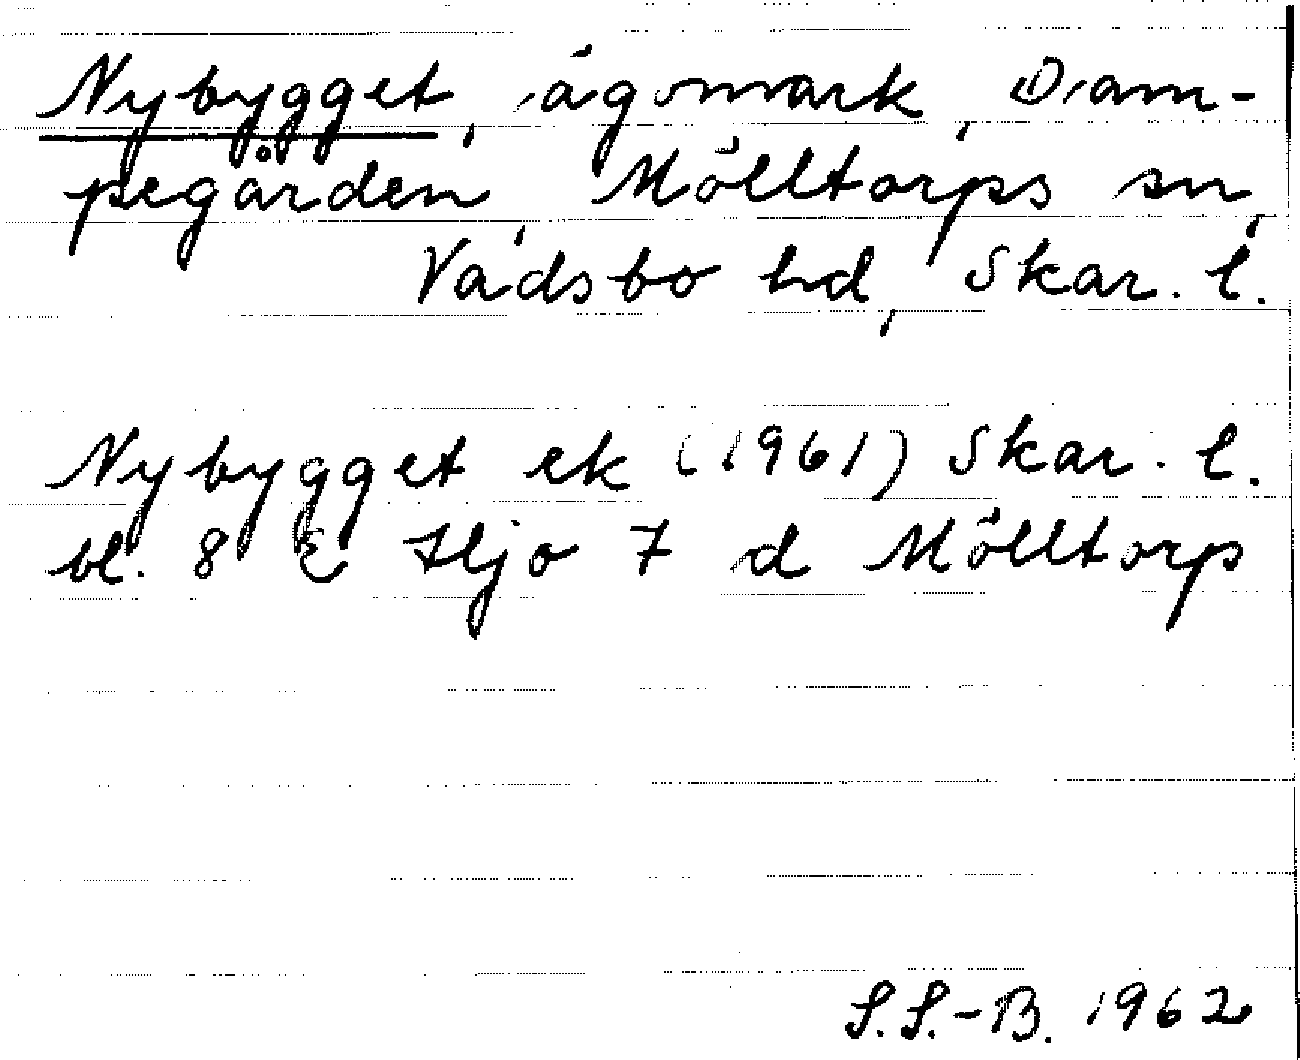 Nybygget, ägomark, Dam-
pegården, Mölltorps sn,
Vadsbo hd, Skar. l.
Nybygget ek (1961) Skar. l.
bl. 8 E Hjo 7 d Mölltorp
S.S.-B. 1962